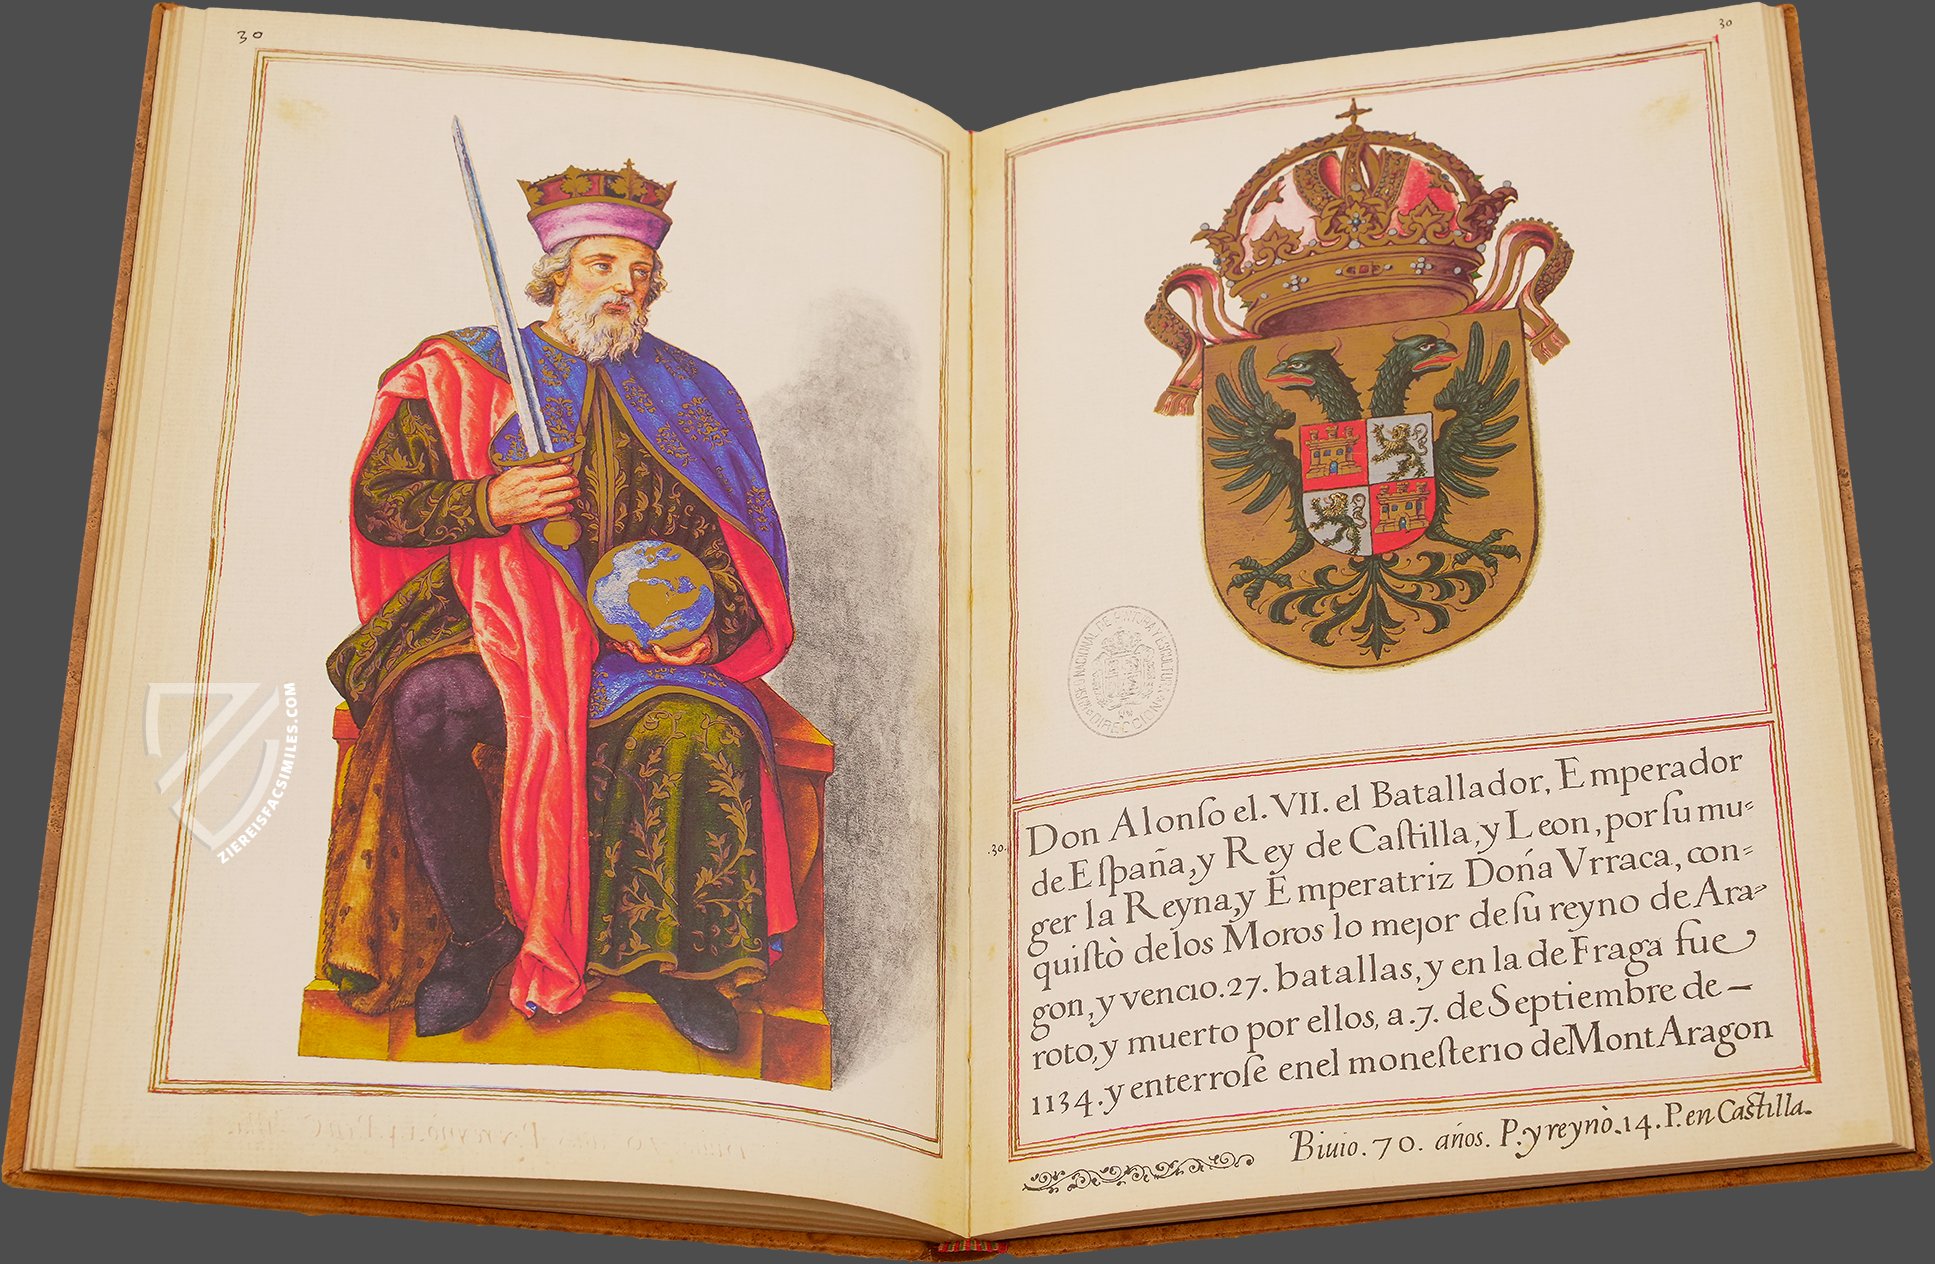 30
ZIEREISFACSIMILES.COM
30
Don Alonſo el.VII.el Batallador, Emperador
de Eſpaña,y Rey de Caſtilla,y Leon,por ſu mu⸗
.30.
ger la Reyna,y Emperatriz Doña Vrraca,con⸗
quiſtò delos Moros lo mejor de ſu reyno de Ara⸗
gon,y vencıo.27.batallas,y en la de Fraga fue
roto,y muerto por ellos, a.7. de Septiembre de —
1134.y enterroſe enel moneſterıo deMont Aragon
Biuio. 70. años. P.y reynò.14.P.en Castılla.